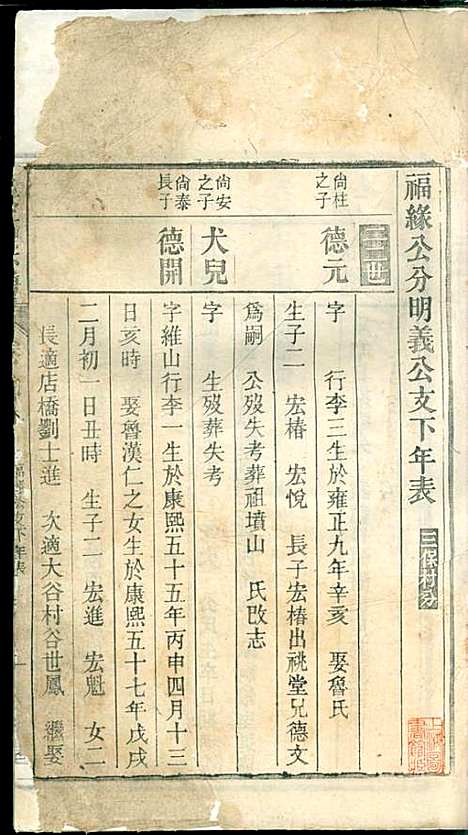 福緣公分明義公支下年表
三保村
尙柱之子
德元
字 行李三生於雍正九年辛亥 娶魯氏
生子二 宏椿 宏悅 長子宏椿出祧堂兄德文
爲嗣 公歿失考葬祖墳山 氏改志
尙安之子
犬兒
字 生歿葬失考
尙泰長子
德開
字維山行李一生於康熙五十五年丙申四月十三
日亥時 娶魯漢仁之女生於康熙五十七年戊戌
二月初一日丑時 生子二 宏進 宏魁 女二
長適店橋劉士進 次適大谷村谷世鳳 繼娶